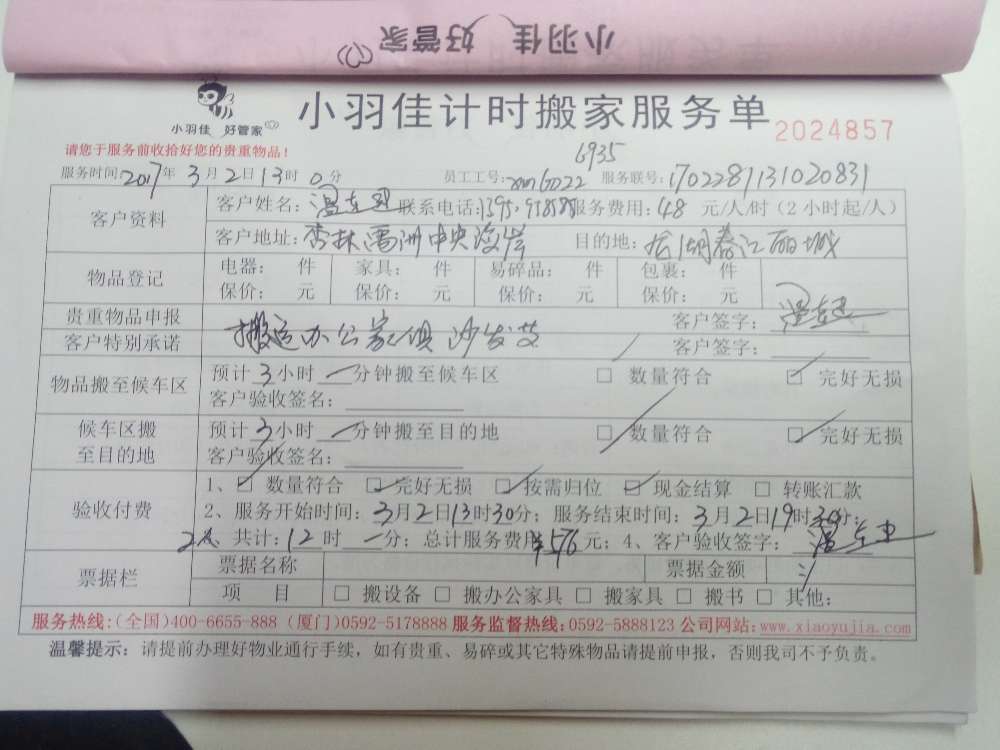 小羽佳 好管家
小羽佳 好管家
小羽佳计时搬家服务单
2024857
请您于服务前收拾好您的贵重物品！
6935
服务时间:2017年3月2日13时0分 员工工号:xm6022 服务联号:1702281131020831
客户资料
客户姓名： 联系电话: 服务费用:48元/人/时(2小时起/人)
客户地址:杏林禹洲中央海岸 目的地:龙湖春江丽城
物品登记
电器： 件 家具： 件 易碎品： 件 包裹： 件
保价： 元 保价： 元 保价： 元 保价： 元
贵重物品申报 客户签字：
客户特别承诺 搬运办公家俱沙发 客户签字：
物品搬至候车区
预计3小时一分钟搬至候车区 □ 数量符合 ☑ 完好无损
客户验收签名：
候车区搬至目的地
预计3小时一分钟搬至目的地 □ 数量符合 ☑ 完好无损
客户验收签名：
验收付费
1、☑ 数量符合 ☑完好无损 ☑按需归位 ☑现金结算 □ 转账汇款
2、服务开始时间：3月2日13时30分；服务结束时间：3月2日19时30分；
2人 共计：12时一分；总计服务费用¥576元；4、客户验收签字：
票据栏
票据名称 票据金额
项 目 □ 搬设备 □ 搬办公家具 □ 搬家具 □ 搬书 □ 其他：
服务热线:(全国)400-6655-888 (厦门)0592-5178888 服务监督热线:0592-5888123 公司网站:www.xiaoyujia.com
温馨提示：请提前办理好物业通行手续，如有贵重、易碎或其它特殊物品请提前申报，否则我司不予负责。